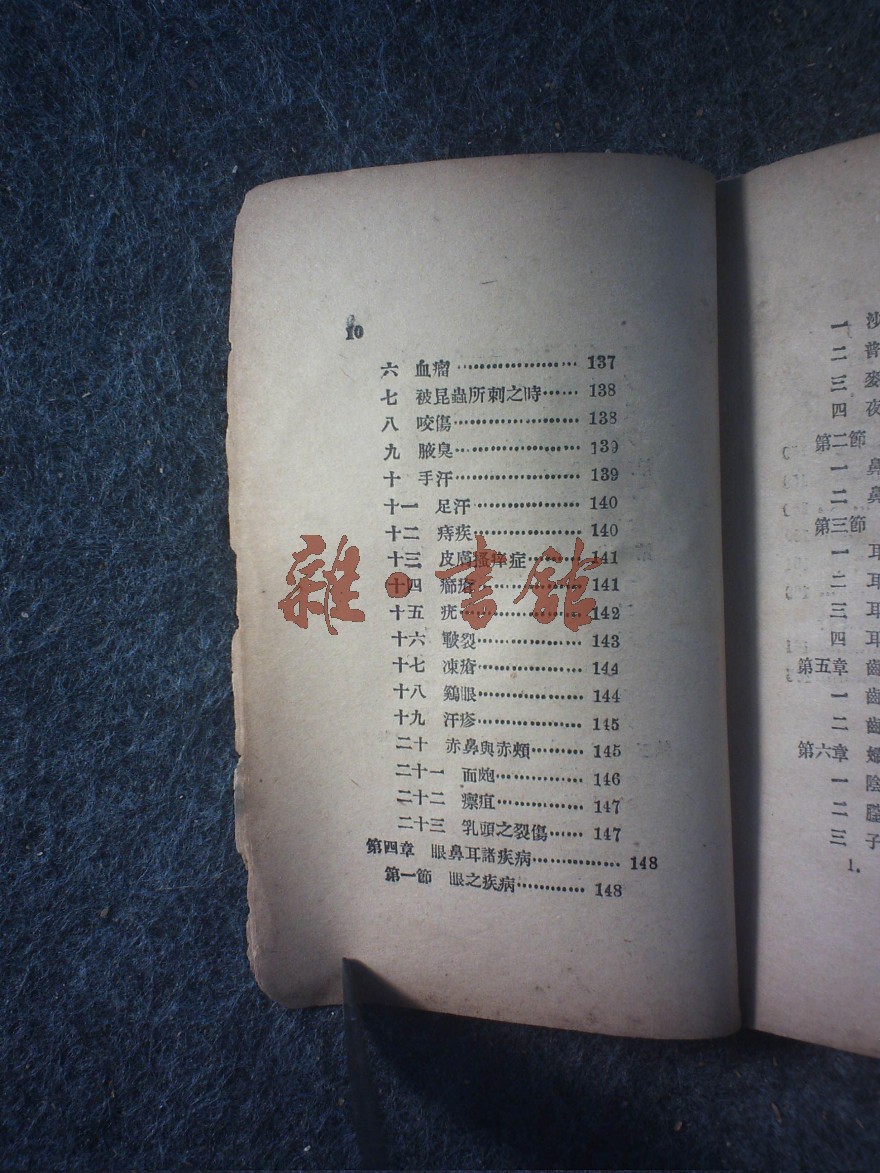 10
六 血瘤………………137
七 被昆蟲所刺之時……138
八 咬傷………………138
九 腋臭………………139
十 手汗………………139
十一 足汗………………140
十二 痔疾………………140
十三 皮膚搔痒症………141
十四 癤瘡………………141
十五 疣………………142
十六 皸裂………………143
十七 凍瘡………………144
十八 鷄眼………………144
十九 汗疹………………145
二十 赤鼻與赤頰………145
二十一 面皰……………146
二十二 瘭疽……………147
二十三 乳頭之裂傷……147
第四章 眼鼻耳諸疾病…………148
第一節 眼之疾病…………148
雜·書館
一 沙
二 普
三 麥
四 夜
第二節
一 鼻
二 鼻
第三節
一 耳
二 耳
三 耳
四 耳
第五章 齒
一 齒
二 齒
第六章 婦
一 陰
二 膣
三 子
1.